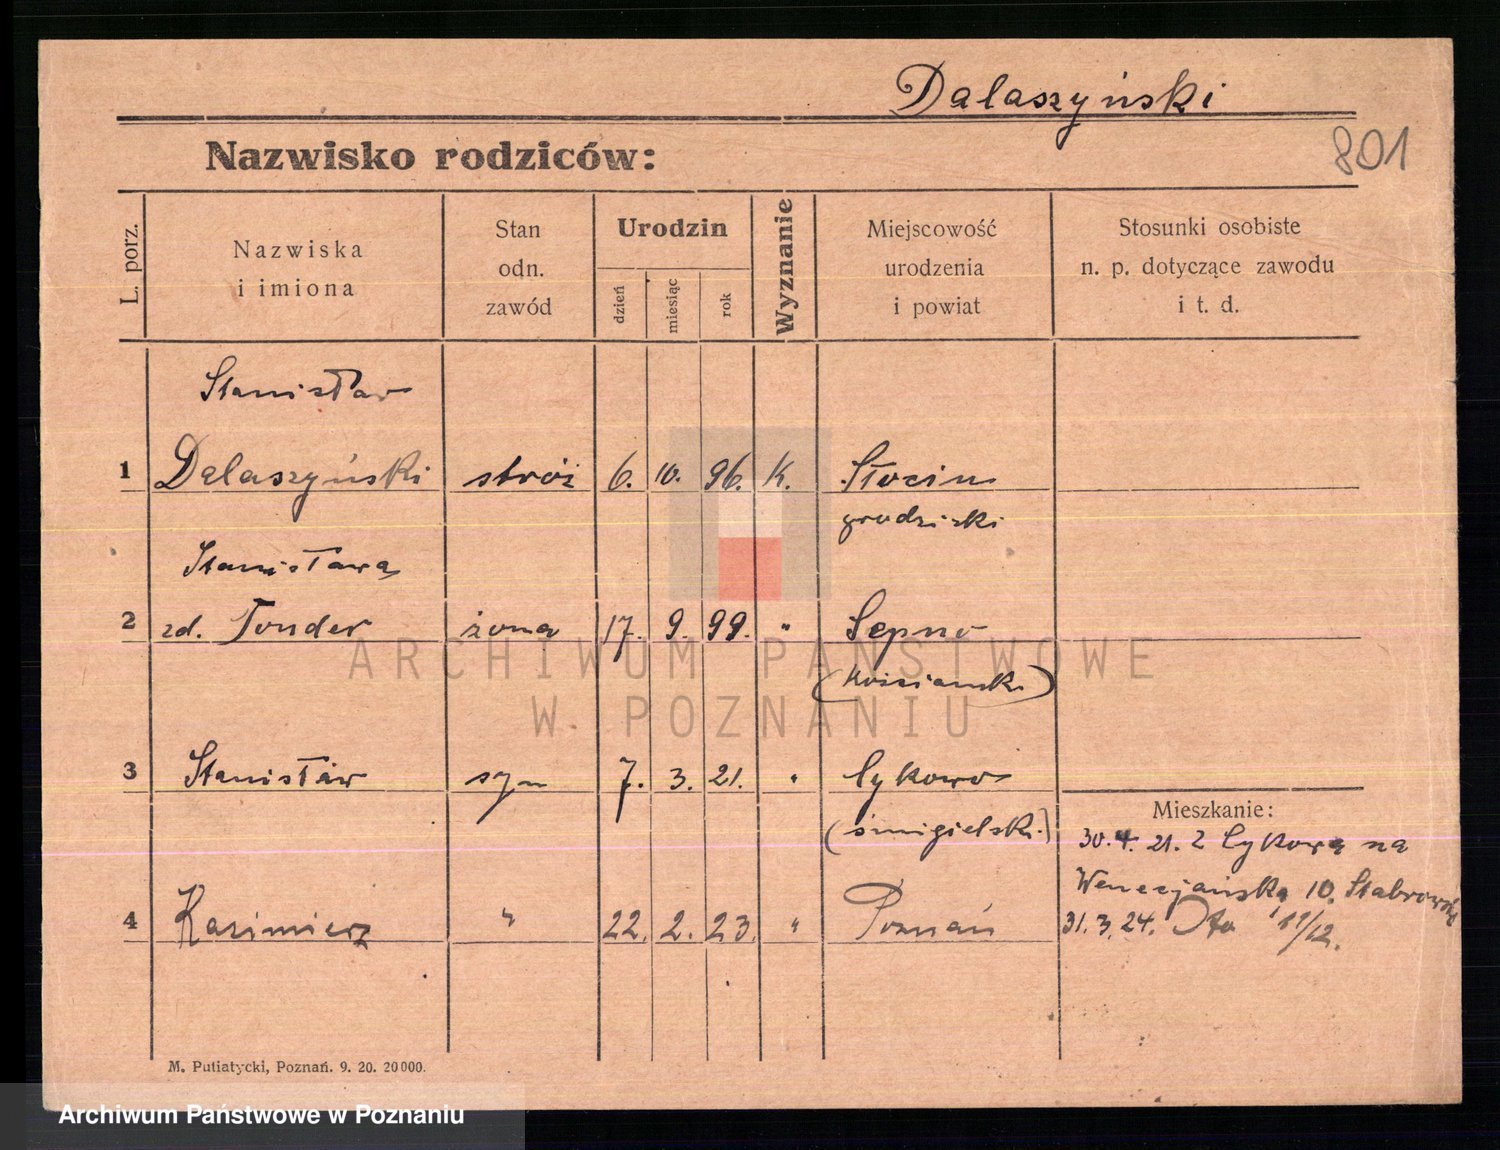 Dalaszyński
801
Nazwisko rodziców:
L. porz.
Nazwiska
i imiona
Stan
odn.
zawód
Urodzin
dzień
miesiąc
rok
Wyznanie
Miejscowość
urodzenia
i powiat
Stosunki osobiste
n. p. dotyczące zawodu
i t. d.
Stanisław
1 Dalaszyński stróż 6. 10. 96. K. Słocin
grodziski
Stanisława
2 zd. Tonder żona 17. 9. 99. " Sepno
(kościański)
3 Stanisław syn 7. 3. 21. " Łykowo
(śmigielski)
Mieszkanie:
30. 4. 21. z Łykowa na
Wenecjańska 10. Stabrowski
4 Kazimierz " 22. 2. 23. " Poznań 31. 3. 24. 11/12.
M. Putiatycki, Poznań. 9. 20. 20000.
ARCHIWUM PAŃSTWOWE
W POZNANIU
Archiwum Państwowe w Poznaniu